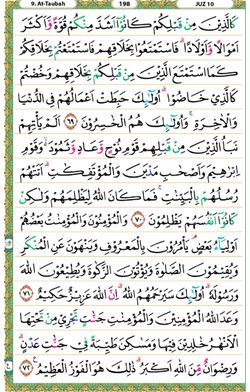 9. At-Taubah 198 JUZ 10
كَالَّذِينَ مِنْ قَبْلِكُمْ كَانُوْٓا اَشَدَّ مِنْكُمْ قُوَّةً وَّاَكْثَرَ
اَمْوَالًا وَّاَوْلَادًاۗ فَاسْتَمْتَعُوْا بِخَلَاقِهِمْ فَاسْتَمْتَعْتُمْ بِخَلَاقِكُمْ
كَمَا اسْتَمْتَعَ الَّذِيْنَ مِنْ قَبْلِكُمْ بِخَلَاقِهِمْ وَخُضْتُمْ
كَالَّذِيْ خَاضُوْاۗ اُولٰۤىِٕكَ حَبِطَتْ اَعْمَالُهُمْ فِى الدُّنْيَا
وَالْاٰخِرَةِۚ وَاُولٰۤىِٕكَ هُمُ الْخٰسِرُوْنَ ٦٩ اَلَمْ يَأْتِهِمْ
نَبَاُ الَّذِيْنَ مِنْ قَبْلِهِمْ قَوْمِ نُوْحٍ وَّعَادٍ وَّثَمُوْدَ ەۙ وَقَوْمِ
اِبْرٰهِيْمَ وَاَصْحٰبِ مَدْيَنَ وَالْمُؤْتَفِكٰتِۗ اَتَتْهُمْ
رُسُلُهُمْ بِالْبَيِّنٰتِۚ فَمَا كَانَ اللّٰهُ لِيَظْلِمَهُمْ وَلٰكِنْ
كَانُوْٓا اَنْفُسَهُمْ يَظْلِمُوْنَ ٧٠ وَالْمُؤْمِنُوْنَ وَالْمُؤْمِنٰتُ بَعْضُهُمْ
اَوْلِيَاۤءُ بَعْضٍۘ يَأْمُرُوْنَ بِالْمَعْرُوْفِ وَيَنْهَوْنَ عَنِ الْمُنْكَرِ
وَيُقِيْمُوْنَ الصَّلٰوةَ وَيُؤْتُوْنَ الزَّكٰوةَ وَيُطِيْعُوْنَ اللّٰهَ
وَرَسُوْلَهٗۗ اُولٰۤىِٕكَ سَيَرْحَمُهُمُ اللّٰهُۗ اِنَّ اللّٰهَ عَزِيْزٌ حَكِيْمٌ ٧١
وَعَدَ اللّٰهُ الْمُؤْمِنِيْنَ وَالْمُؤْمِنٰتِ جَنّٰتٍ تَجْرِيْ مِنْ تَحْتِهَا
الْاَنْهٰرُ خٰلِدِيْنَ فِيْهَا وَمَسٰكِنَ طَيِّبَةً فِيْ جَنّٰتِ عَدْنٍۗ
وَرِضْوَانٌ مِّنَ اللّٰهِ اَكْبَرُۗ ذٰلِكَ هُوَ الْفَوْزُ الْعَظِيْمُ ٧٢